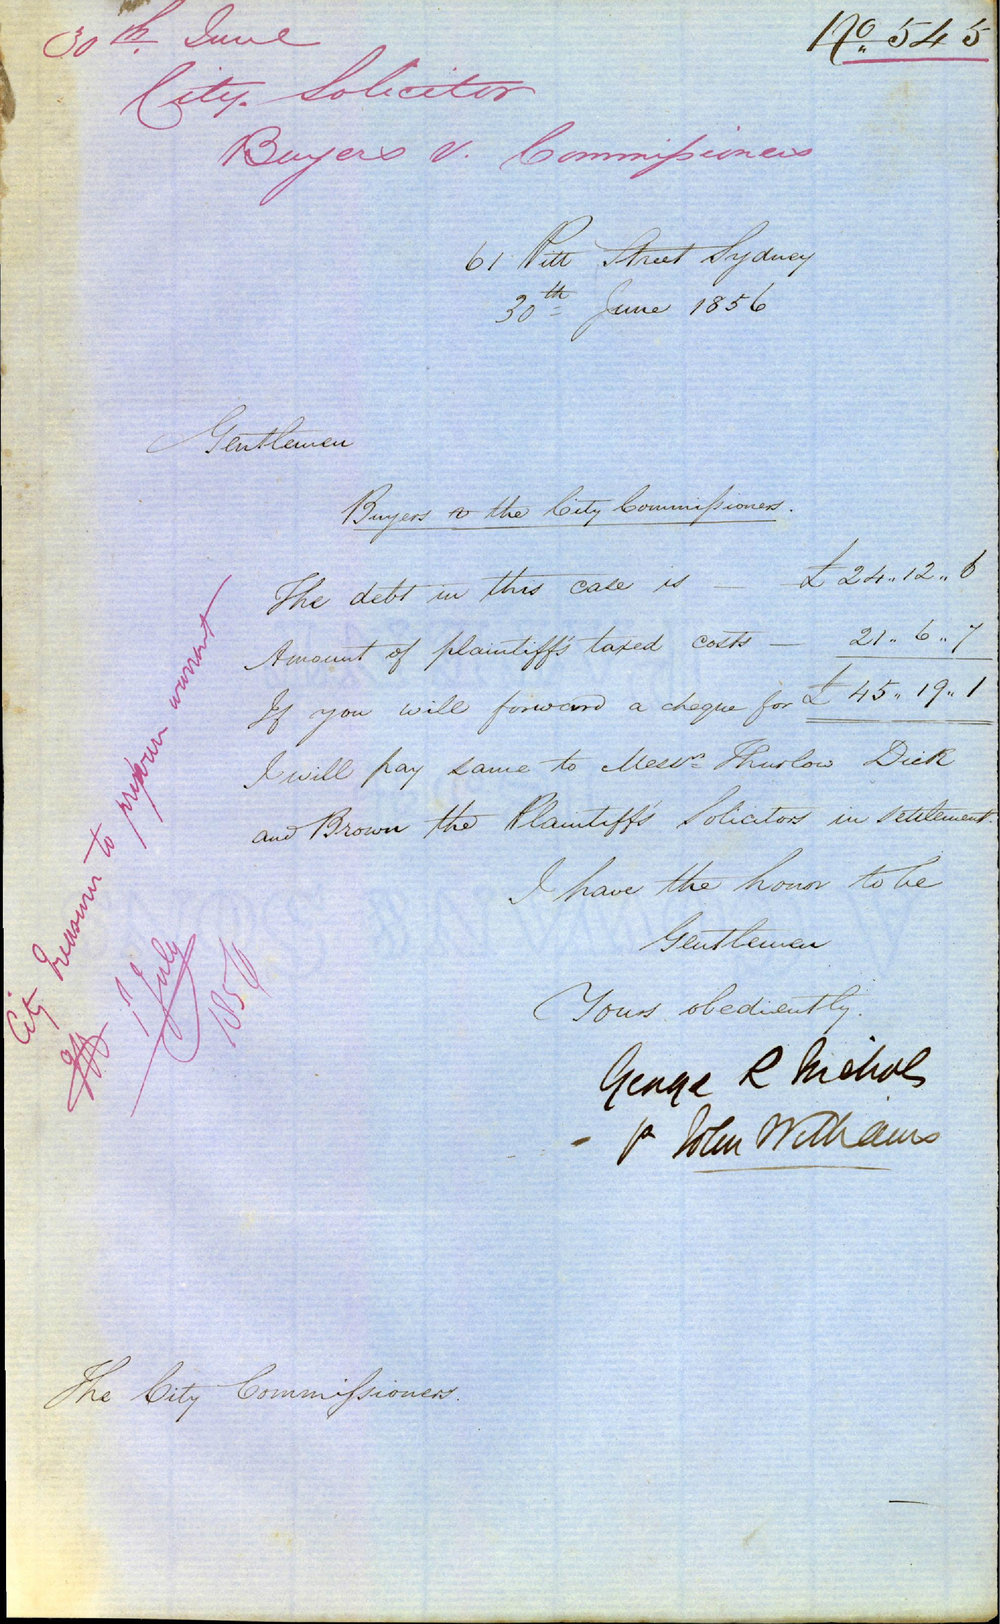 30th. June
No. 545
City. Solicitor
Buyers v. Commissioners
61 Pitt Street Sydney
30th June 1856
Gentlemen
Buyers v the City Commissioners.
The debt in this case is — £24..12..6
Amount of plaintiff's taxed costs — 21..6..7
If you will forward a cheque for £45..19..1
I will pay same to Messrs Thurlow Dick
and Brown the Plaintiff's Solicitors in settlement.
I have the honor to be
Gentlemen
Yours obediently.
George R Nichols
p John Williams
City Treasurer to prepare warrant
1 July
1856
The City Commissioners.